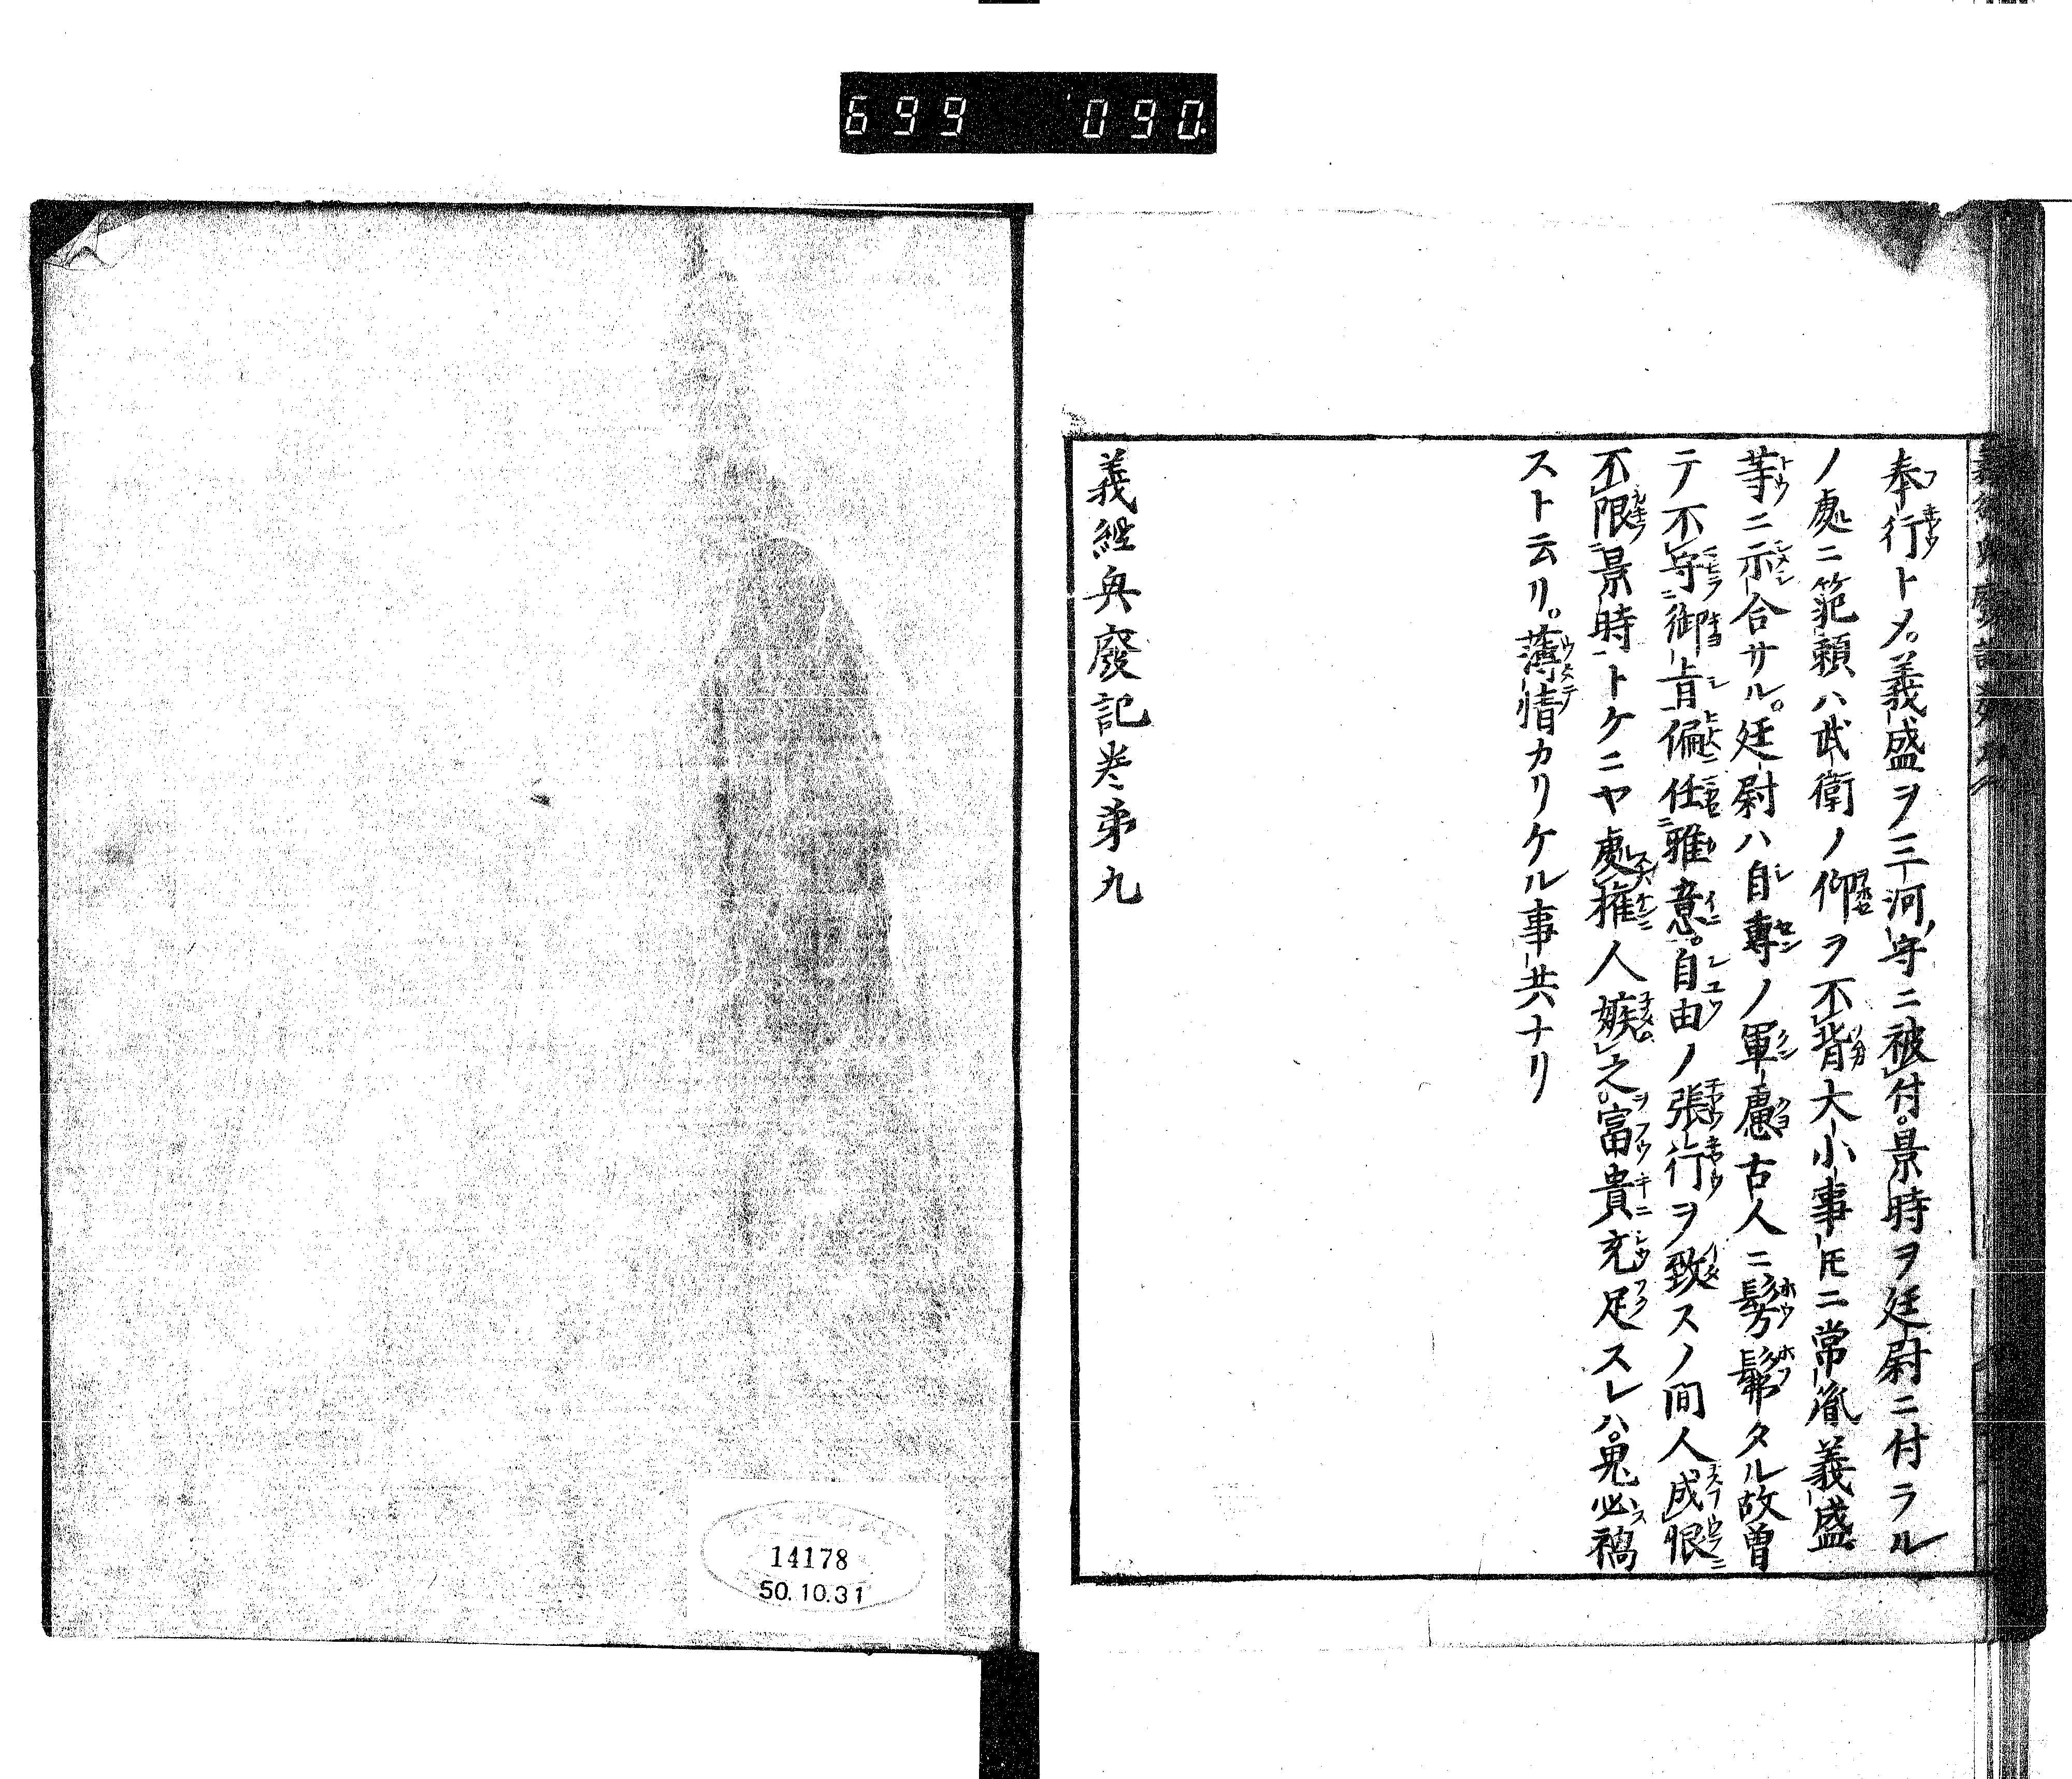 699 090
奉行トメ。義盛ヲ三河守ニ被付。景時ヲ廷尉ニ付ラル
ノ處ニ範頼ハ武衛ノ仰ヲ不背大小事𪜈ニ常胤義盛
等ニ示合サル。廷尉ハ自專ノ軍慮古人ニ髣髴タル故曽
テ不守御旨偏任雅意。自由ノ張行ヲ致スノ間人成恨
不限景時トケニヤ處權人嫉之。富貴充足スレハ。鬼必禍
スト云リ。薄情カリケル事共ナリ
義經興廢記巻第九
14178
50.10.31